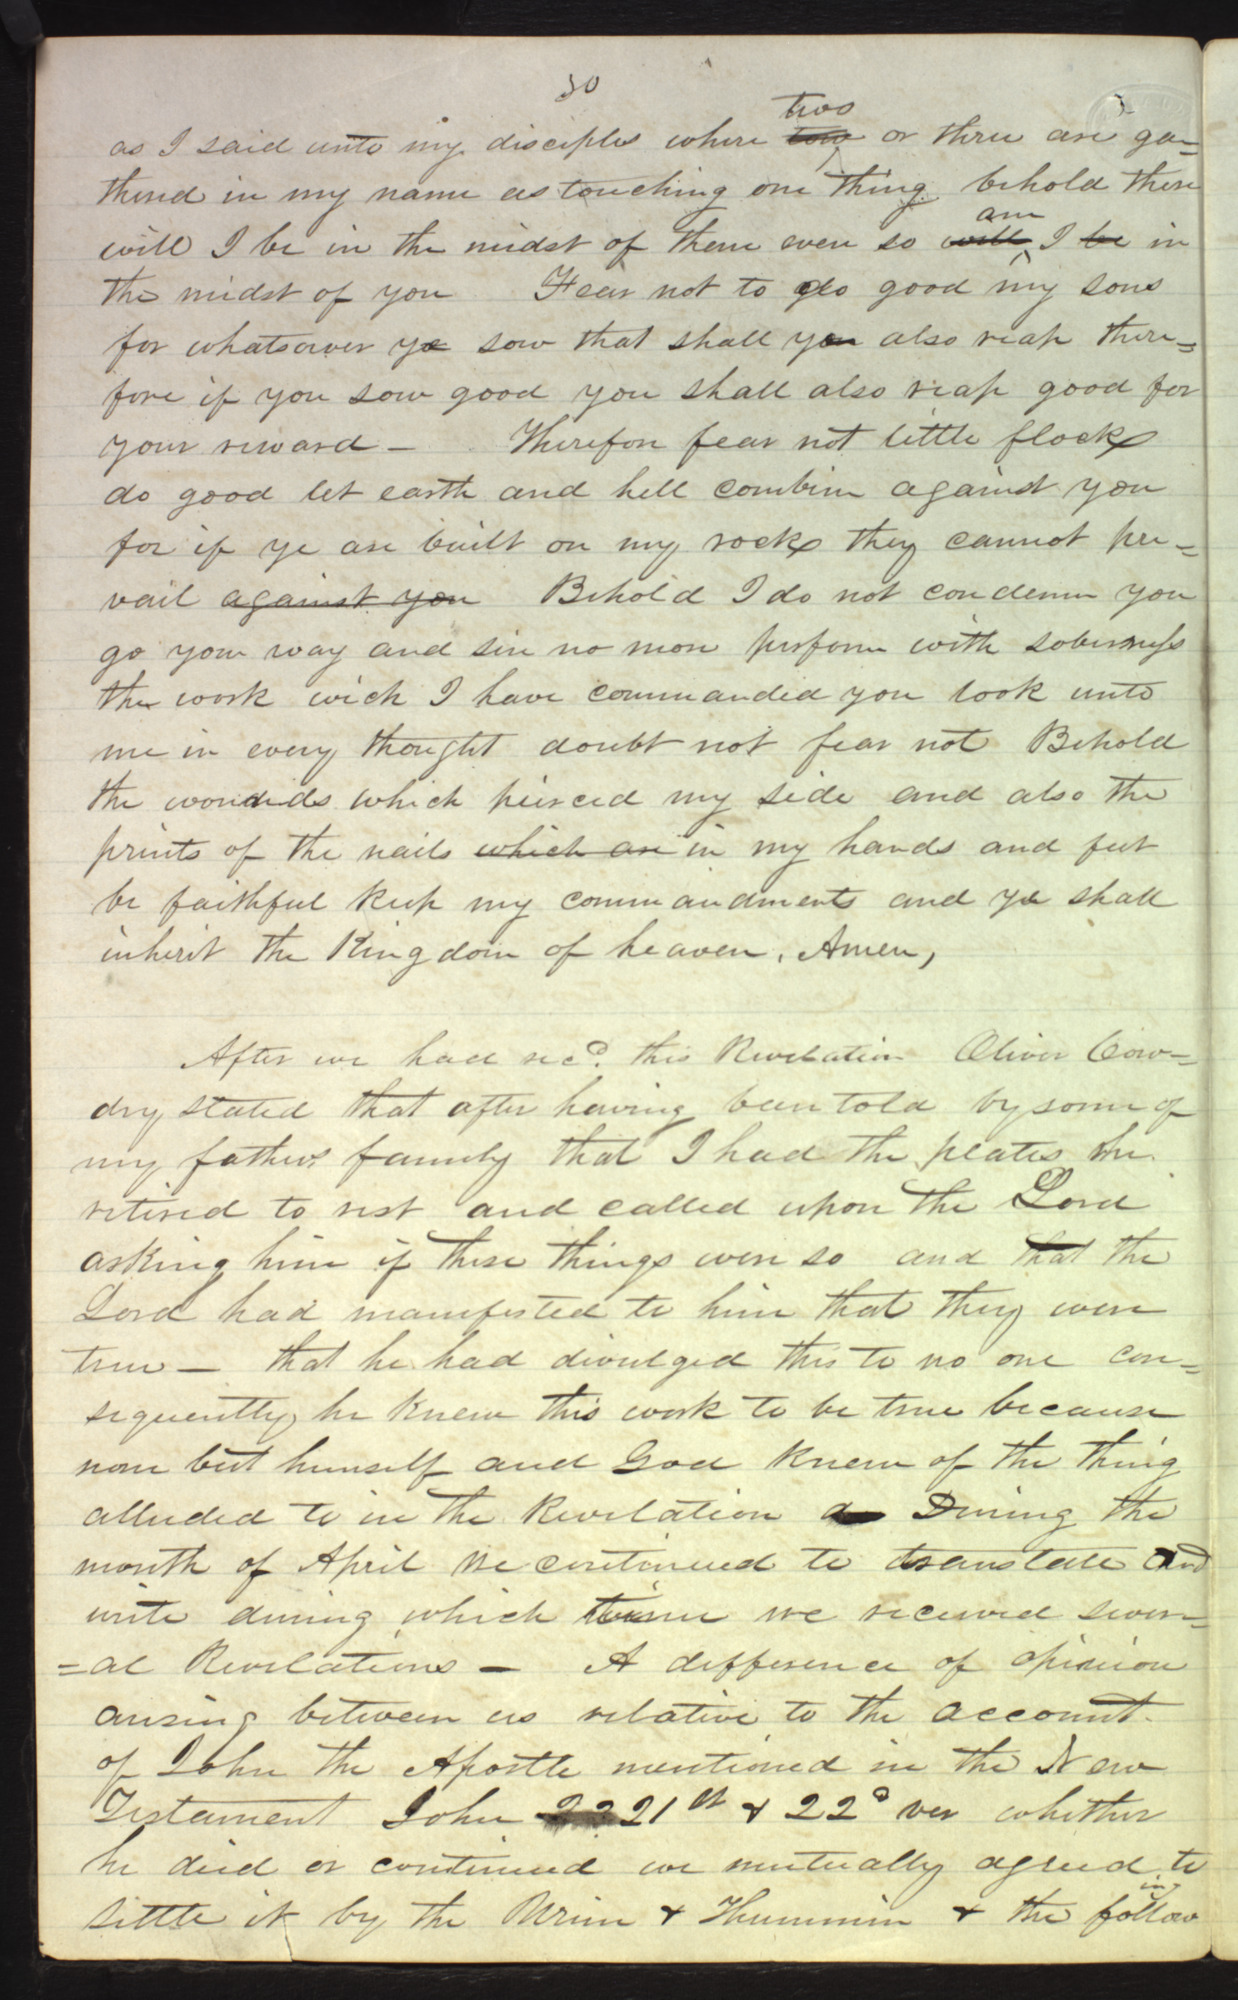 30
as I said unto my disciples where two tow or three are ga=
thered in my name as touching one thing behold there
will I be in the midst of them even so will am I be in
the midst of you Fear not to do good my sons
for whatsoever ye sow that shall you also reap there=
fore if you sow good you shall also reap good for
your reward — Therefore fear not little flock
do good let earth and hell combine against you
for if ye are built on my rock they cannot pre=
vail against you Behold I do not condemn you
go your way and sin no more perform with soberness
the work wich I have commanded you look unto
me in every thought doubt not fear not Behold
the wounds which pierced my side and also the
prints of the nails which are in my hands and feet
be faithful keep my commandments and ye shall
inherit the Kingdom of heaven, Amen,
After we had recd. this Revelation Oliver Cow=
dry stated that after having been told by some of
my fathers family that I had the plates he
retired to rest and called upon the Lord
asking him if these things were so and that the
Lord had manifested to him that they were
true — that he had divulged this to no one con=
sequently he knew this work to be true because
none but himself and God knew of the thing
alluded to in the Revelation During the
month of April we continued to translate and
write during which time we received sever=
=al Revelations — A difference of opinion
arising between us relative to the account
of John the Apostle mentioned in the New
Testament John 22 21st & 22d ver whether
he died or continued we mutually agreed to
settle it by the Urim & Thummim & the follow
ing